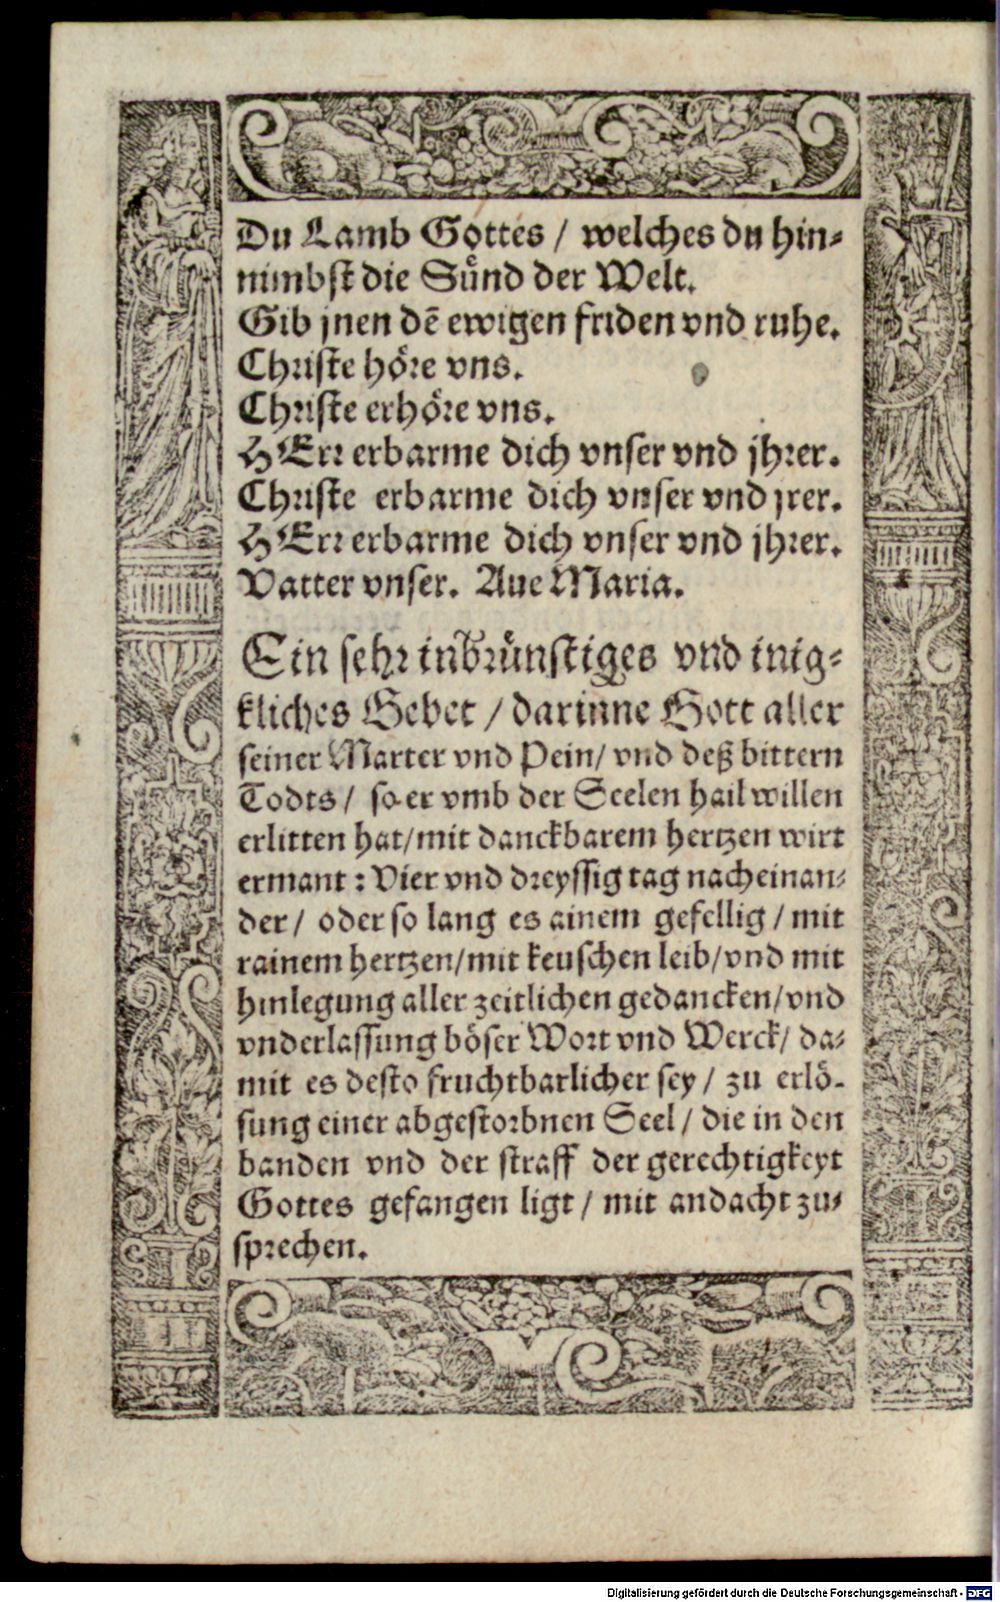 Du Lamb Gottes / welches du hin⸗
nimbst die Sünd der Welt.
Gib jnen dē ewigen friden vnd ruhe.
Christe höre vns.
Christe erhöre vns.
HErr erbarme dich vnser vnd jhrer.
Christe erbarme dich vnser vnd jrer.
HErr erbarme dich vnser vnd jhrer.
Vatter vnser. Aue Maria.
Ein sehr inbrünstiges vnd inig⸗
kliches Gebet / darinne Gott aller
seiner Marter vnd Pein / vnd deß bittern
Todts / so er vmb der Seelen hail willen
erlitten hat / mit danckbarem hertzen wirt
ermant : Vier vnd dreyssig tag nacheinan⸗
der / oder so lang es ainem gefellig / mit
rainem hertzen / mit keuschen leib / vnd mit
hinlegung aller zeitlichen gedancken / vnd
vnderlassung böser Wort vnd Werck / da⸗
mit es desto fruchtbarlicher sey / zu erlö⸗
sung einer abgestorbnen Seel / die in den
banden vnd der straff der gerechtigkeyt
Gottes gefangen ligt / mit andacht zu⸗
sprechen.
Digitalisierung gefördert durch die Deutsche Forschungsgemeinschaft - DFG